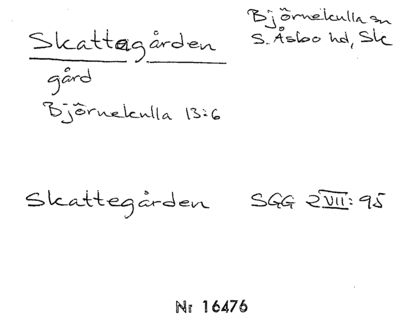 Skattagården
Björnekulla sn
S. Åsbo hd, Sk
gård
Björnekulla 13:6
Skattegården SGG 2 VII: 95
Nr 16476